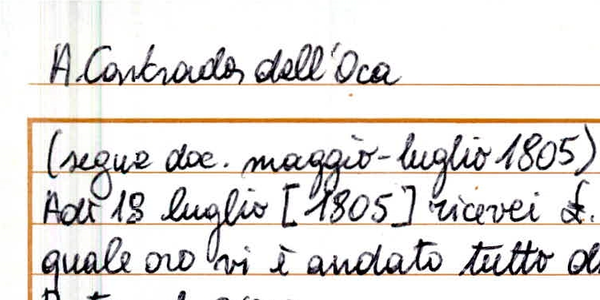 A. Contrada dell'Oca
(segue doc. maggio-luglio 1805)
Adì 18 luglio [1805] ricevei £.
quale oro vi è andato tutto